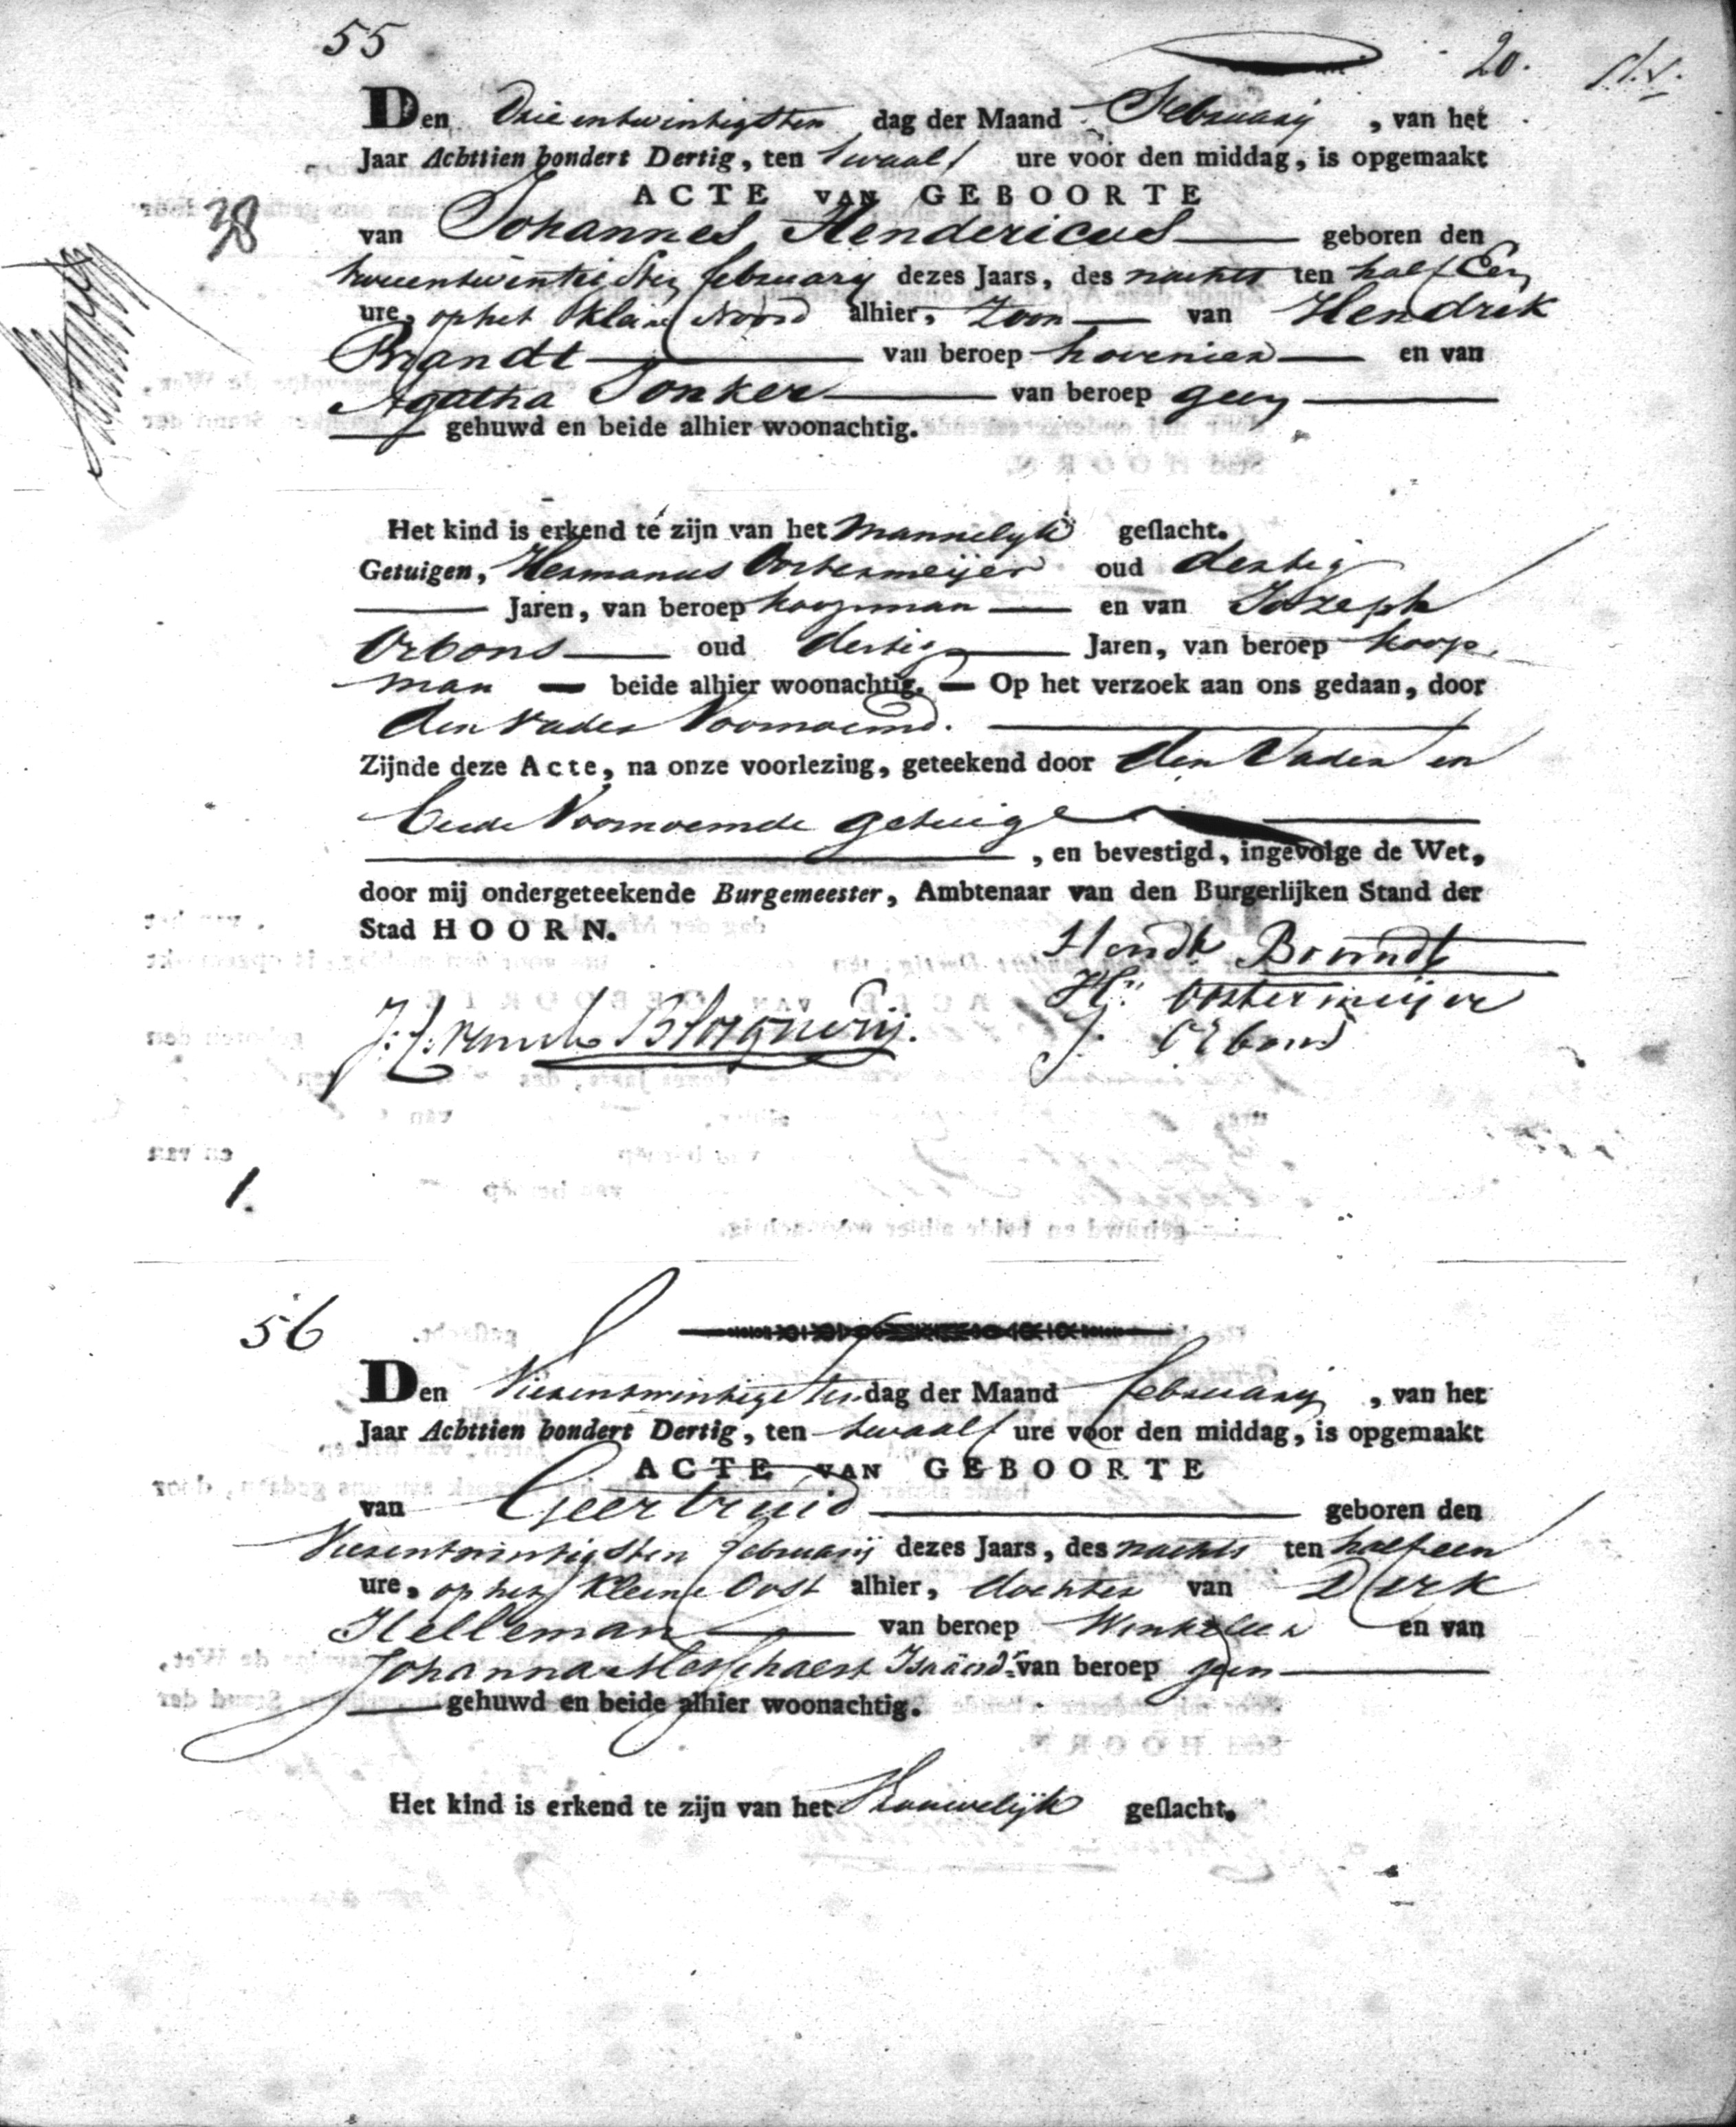 55
20.
Den Drie entwintigsten dag der Maand February , van het
Jaar Achttien hondert Dertig, ten twaalf ure voor den middag, is opgemaakt
ACTE VAN GEBOORTE
38
van Johannes Hendericus geboren den
tweeentwintigsten february dezes Jaars, des nachts ten half Een
ure, op het kleine Noord alhier, Zoon van Hendrik
Brandt van beroep hovenier en van
Agatha Jonker van beroep geen
gehuwd en beide alhier woonachtig.
Het kind is erkend te zijn van het Mannelyk geslacht.
Getuigen, Hermanus Oostermeijer oud dertig
Jaren, van beroep koopman en van Jozeph
Orbons oud dertig Jaren, van beroep koop
man beide alhier woonachtig. Op het verzoek aan ons gedaan, door
den Vader Voornoemd.
Zijnde deze Acte, na onze voorlezing, geteekend door den Vader en
beide Voornoemde getuige
, en bevestigd, ingevolge de Wet,
door mij ondergeteekende Burgemeester, Ambtenaar van den Burgerlijken Stand der
Stad HOORN.
Hendk Brandt
Hs Oostermeijer
J. Orbons
1.
56
Den Vierentwintigsten dag der Maand february , van het
Jaar Achttien hondert Dertig, ten twaalf ure voor den middag, is opgemaakt
ACTE VAN GEBOORTE
van Geertruid geboren den
Vierentwintigsten februarij dezes Jaars, des nachts ten half een
ure, op het Kleine Oost alhier, dochter van Dirk
Helleman van beroep Winkelier en van
Johanna Messchaert Isaaksd. van beroep geen
gehuwd en beide alhier woonachtig.
Het kind is erkend te zijn van het Vrouwelijk geslacht.